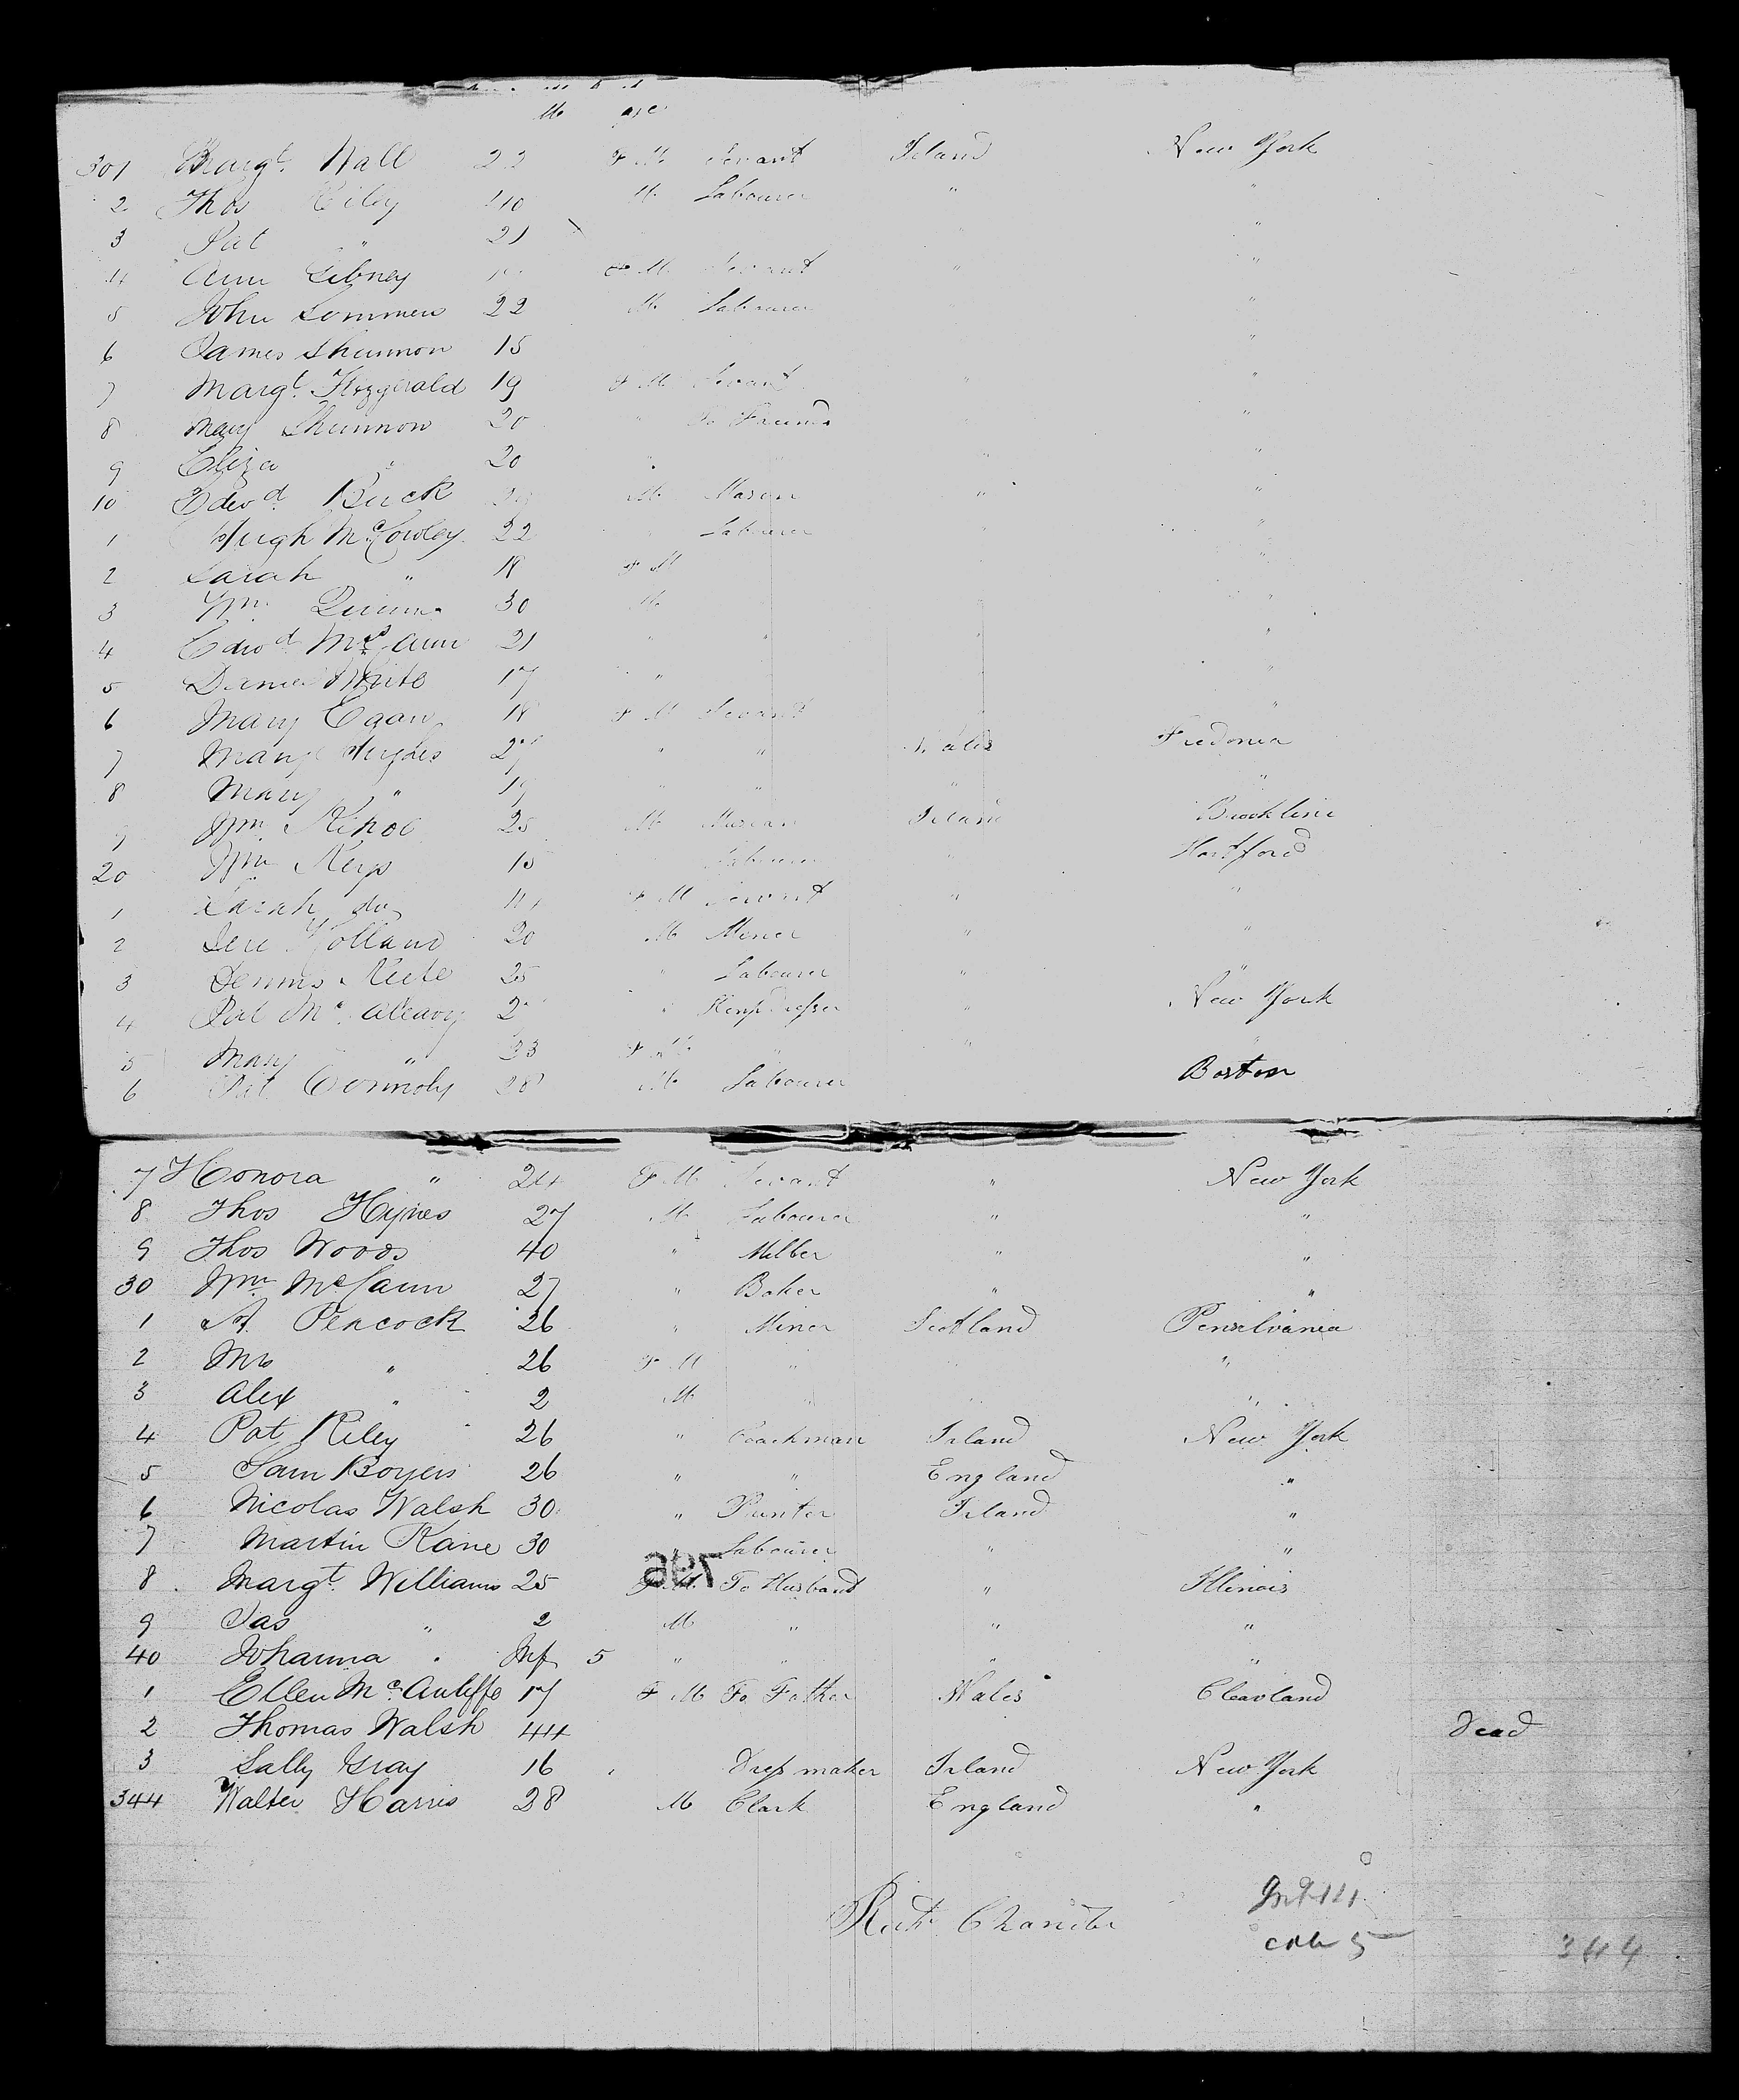 M age
301 Margt. Wall 22 F M Servant Ireland New York
2 Thos Riley 40 M Labourer " "
3 Pat " 21 "
4 Ann Gibney F M Servant " "
5 John Sommers 22 M Labourer "
6 James Shannon 15 "
7 Margt. Fitzgerald 19 F M Servant " "
8 Mary Shannon 20 " To Friends "
9 Eliza " 20 " " "
10 Edwd. Buck M Mason " "
1 Hugh McCowley 22 Labourer "
2 Sarah " 18 F M "
3 Wm. Quinn 30 M "
4 Edwd. McCann 21 " " " "
5 Daniel White 17 " "
6 Mary Egan 18 F M Servant "
7 Mary Hughes 27 " " Wales Fredonia
8 Mary " 19 " " " "
9 Wm. 25 M Mason Ireland Brookline
20 Wm 15 Labourer " Hartford
1 Sarah do F M Servant " "
2 Jere Holland 20 M Miner " "
3 Dennis 25 " Labourer " "
4 Pat Mc. Aleavy " Hemp dresser " New York
5 Mary " 23 F M " " "
6 Pat Connoly 28 M Labourer Boston
7 Honora " 24 F M Servant " New York
8 Thos Hynes 27 M Labourer " "
9 Thos Woods 40 " Miller " "
30 Wm McCann 27 " Baker " "
1 A. Peacock 26 " Miner Scotland Pensilvania
2 Mrs " 26 F M " "
3 Alex " 2 M " "
4 Pat Riley 26 " Coachman Ireland New York
5 Sam Boyers 26 " " England "
6 Nicolas Walsh 30 " Printer Ireland "
7 Martin Kane 30 " Labourer " "
8 Margt. Williams 25 F M To Husband " Illinois
9 Jas " 2 M " " "
40 Johanna " Inf 5 " " " "
1 Ellen Mc.Auliffe 17 F M To Father Wales Cleavland
2 Thomas Walsh 44 Dead
3 Sally Gray 16 Dress maker Ireland New York
344 Walter Harris 28 M Clark England "
Chandler
5 344